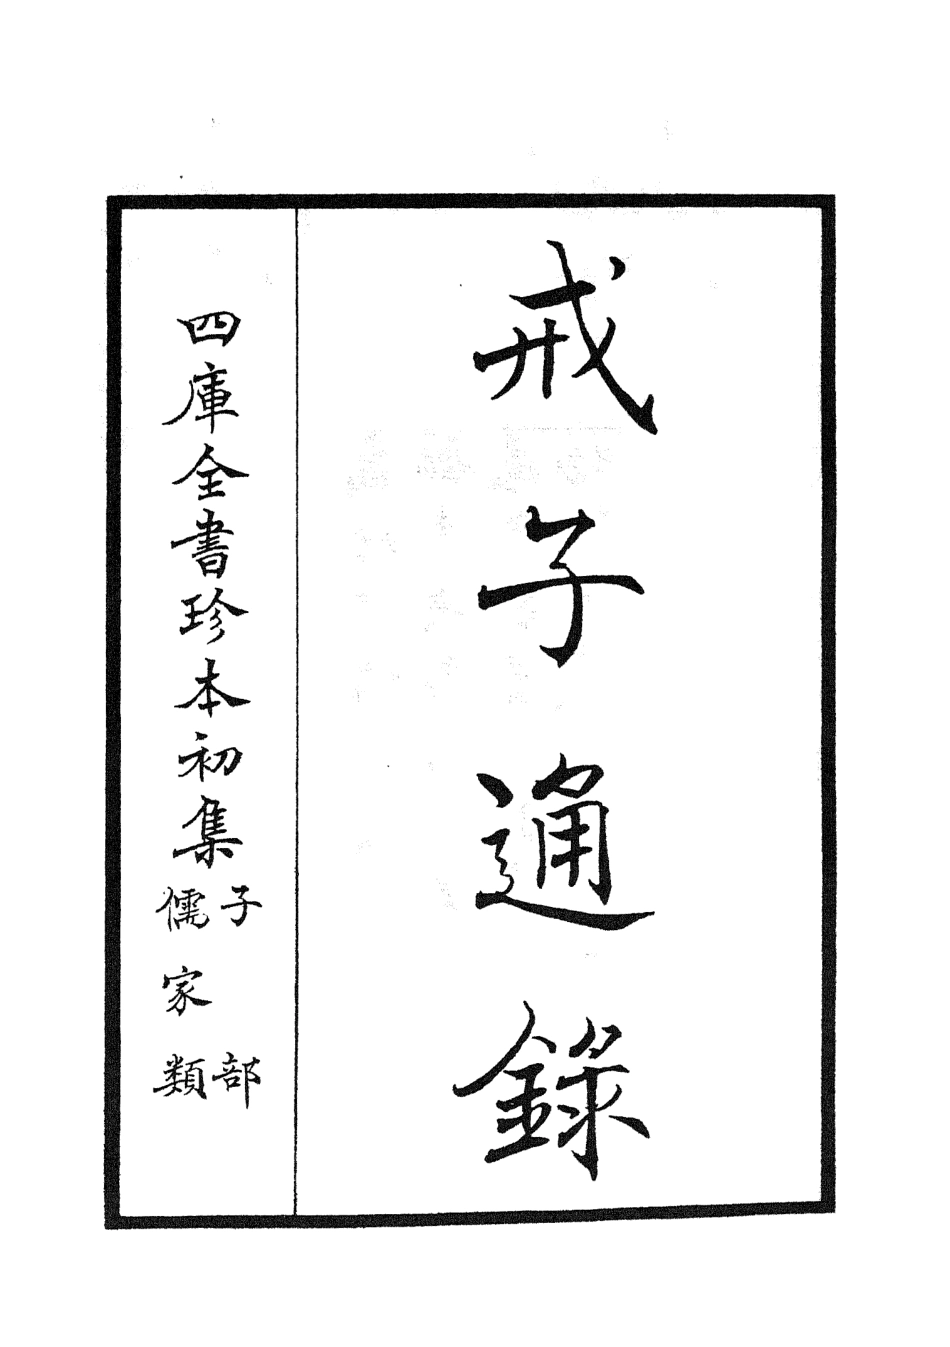 戒子通錄
四庫全書珍本初集
子部
儒家類